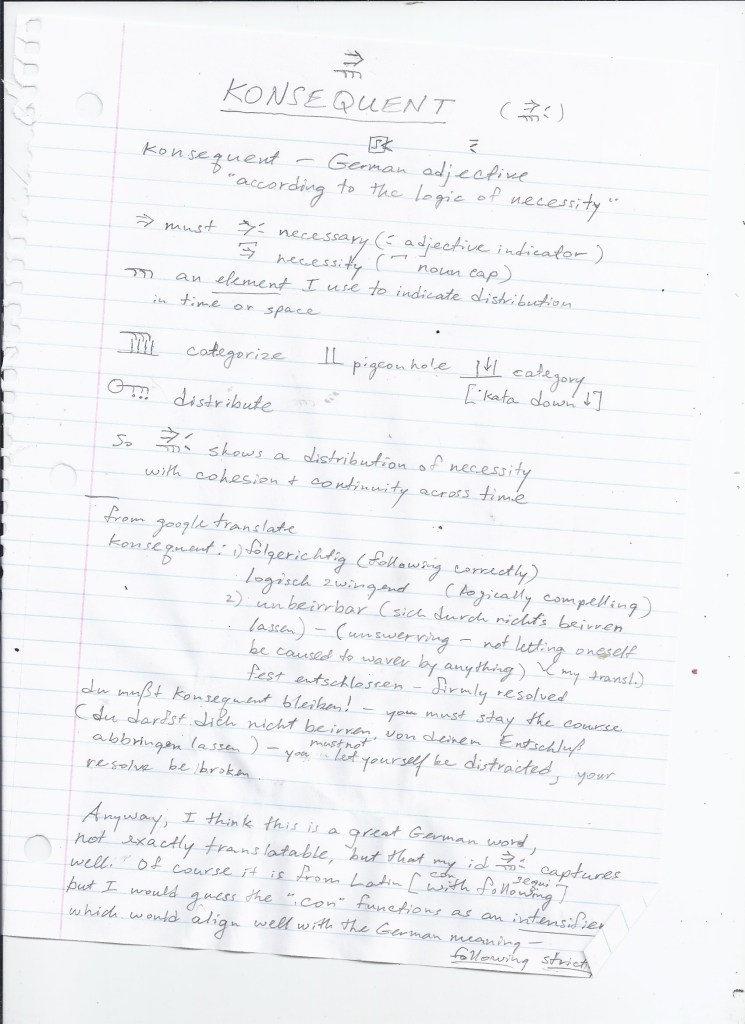 KONSEQUENT (⇒:)
konsequent – German adjective
"according to the logic of necessity"
⇒ must ⇒: necessary (: adjective indicator)
⇒ necessity (¬ noun cap)
an element I use to indicate distribution
in time or space
categorize pigeonhole |↓| category
[:kata down ↓]
distribute
So ⇒: shows a distribution of necessity
with cohesion + continuity across time
from google translate
konsequent: 1) folgerichtig (following correctly)
logisch zwingend (logically compelling)
2) unbeirrbar (sich durch nichts beirren
lassen) – (unswerving – not letting oneself
be caused to waver by anything) (my transl.)
fest entschlossen – firmly resolved
du mußt konsequent bleiben! – you must stay the course
(du darfst dich nicht beirren, von deinem Entschluß
abbringen lassen) – you must not let yourself be distracted, your
resolve be broken.
Anyway, I think this is a great German word,
not exactly translatable, but that my id ⇒: captures
well. Of course it is from Latin [with con following sequi]
but I would guess the ":con" functions as an intensifier
which would align well with the German meaning –
following strict